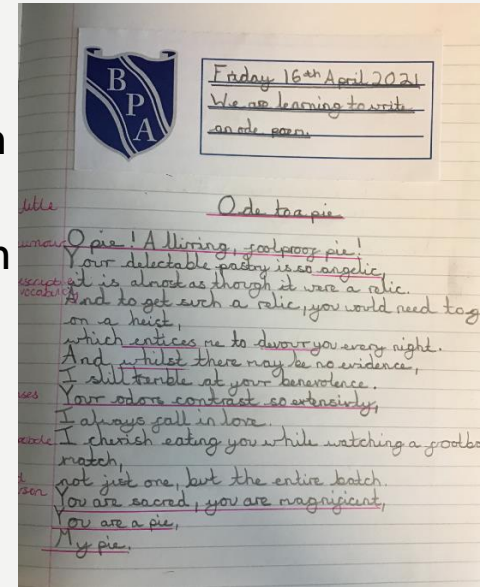 B
P
A
Friday 16th April 2021
We are learning to write
an ode poem.
Title
Ode to a pie
O pie! Alluring, foolproof pie!
Your delectable pastry is so angelic,
it is almost as though it were a relic.
And to get such a relic, you would need to g
on a heist,
which entices me to devour you every night.
And whilst there may be no evidence,
I still tremble at your benevolence.
Your odors contrast so extensivly,
I always fall in love.
I cherish eating you while watching a footba
match,
not just one, but the entire batch.
You are sacred, you are magnificent,
You are a pie,
My pie.